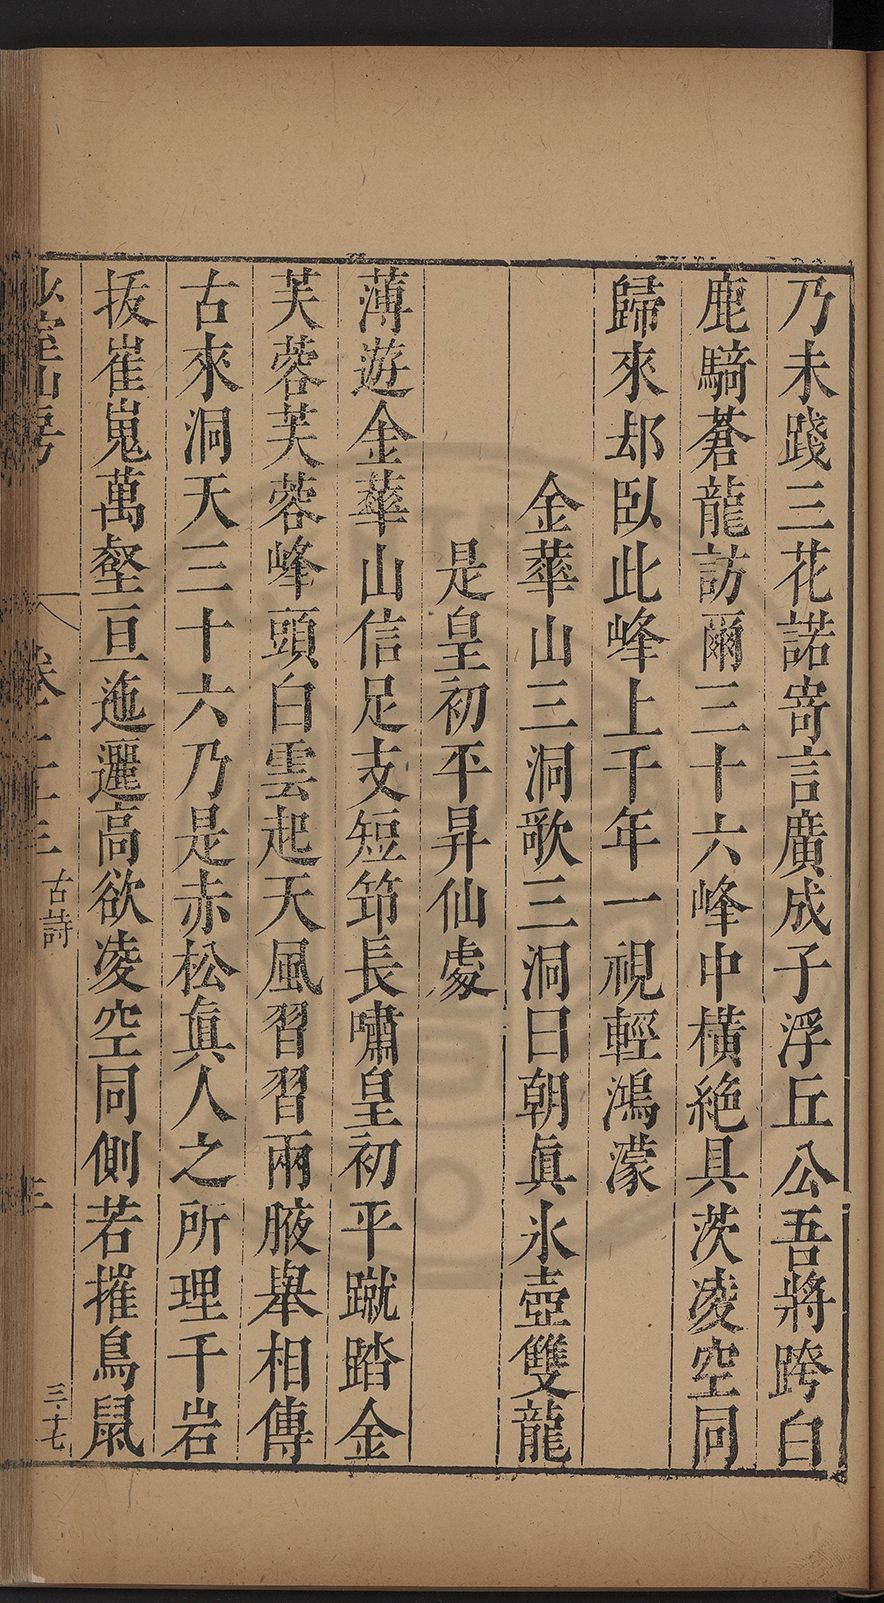 乃未踐三花諾寄言廣成子浮丘公吾將跨白
鹿騎蒼龍訪爾三十六峰中橫絶具茨凌空同
歸來却臥此峰上千年一視輕鴻濛
金華山三洞歌三洞曰朝眞氷壺雙龍
是皇初平昇仙處
薄遊金華山信足支短筇長嘯皇初平蹴踏金
芙蓉芙蓉峰頭白雲起天風習習兩腋舉相傳
古來洞天三十六乃是赤松眞人之所理千岩
拔崔嵬萬壑亘迤邐高欲凌空同側若摧鳥鼠
少室山房 卷二十三 古詩 三 三·十七